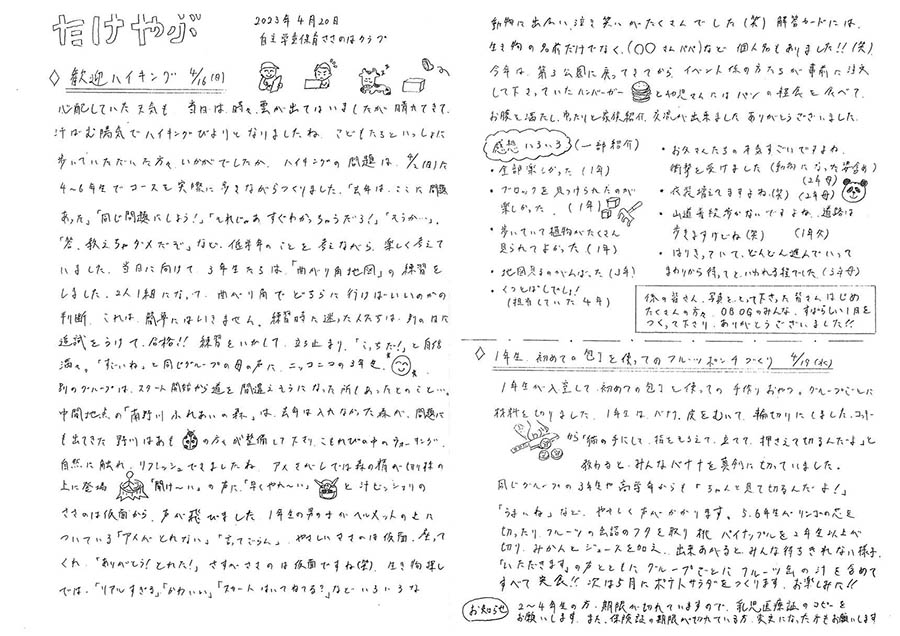 たけやぶ
2023年4月20日
自主学童保育ささのはクラブ
◇ 歓迎ハイキング 4/16(日)
心配していた天気も、当日は、時々雲が出てはいましたが晴れてきて、
汗ばむ陽気でハイキングびよりとなりましたね。こどもたちといっしょに
歩いていただいた方々いかがでしたか。ハイキングの問題は、4/ (日)に
4~6年生でコースを実際に歩きながらつくりました。「去年は、ここに問題
あった」「同じ問題にしよう!」「それじゃあすぐわかっちゃうだろ!」「そうか…。」
「答、教えちゃダメだぞ」など、低学年のことを考えながら、楽しく考えて
いました。当日に向けて、3年生たちは、「曲がり角地図」の練習を
しました。2人1組になって、曲がり角でどちらに行けばいいのかの
判断、これは、簡単にはいきません。練習時に迷った人たちは、別の日に
追試をうけて、合格!! 練習をいかして、立ち止まり、「こっちだ!」と自信
満々。「すごいね」と同じグループの母の声に、ニッコニコの3年生
別のグループは、スタート開始から道を間違えそうになった所もあったとのこと…。
中間地点の「南野川ふれあいの森」は、去年は入れなかった森が、問題に
も出てきた 野川はあも の方々が整備して下さり、こもれびの中のウォーキング、
自然に触れ、リフレッシュできましたね。アメさがしでは森の精が切り株の
上に登場 「開け~い」の声に、「早くやれ~い」 と汁ビッショリの
ささのは仮面から、声が飛びました。1年生の男の子がヘルメットの上に
ついている「アメがとれない」「 てごらん」、やさしいささのは仮面、座って
くれ、「ありがとう!とれた!」さすがささのは仮面ですね(笑)。生き物探し
では、「リアルすぎる」「かわいい」「スカートはいてねてる?」などいろいろな
動物に出会い、泣き笑いがたくさんでした(笑) 解答カードには、
生き物の名前だけでなく、(〇〇さんパパ)など個人名もありました!!(笑)
今年は、第3公園に戻ってきてから、イベント係の方たちが事前に注文
して下さっていたハンバーガー と幼児さんにはパンの軽食を食べて、
お腹を満たし、 家族紹介、交流が出来ました。ありがとうございました。
感想いろいろ (一部紹介)
・全部楽しかった(1年)
・ブロックを見つけられたのが
楽しかった。(1年)
・歩いていて植物がたくさん
見られてよかった(1年)
・地図見るのがんばった(3年)
・くつとばしでしょ!
(担当していた4年)
・お父さんたちの本気すごいですね。
衝撃を受けました(動物になった姿 )
(2年母)
・衣装増えてますよね。(笑) (2年母)
・山道普段歩かないですよね、道路は
歩きますけどね(笑) (1年父)
・はりきっていて、どんどん進んでいって
まわりから待ってと、いわれる程でした。(3年母)
係の皆さん、写真をとって下さった皆さんはじめ
たくさんの方々、OBOGのみんな、すばらしい1日を
つくって下さり、ありがとうございました!!
◇ 1年生、初めての包丁を使ってのフルーツポンチづくり 4/19(水)
1年生が入室して、初めての包丁を使っての手作りおやつ。グループごとに
材料を切りました。1年生は、バナナ、皮をむいて、輪切りにしました。
から「猫の手にして、指をそろえて、立てて、押さえて切るんだよ」と
教わると、みんなバナナを真剣に切っていました。
同じグループの3年生や高学年からも「ちゃんと見て切るんだよ!」
「うまいね」など、やさしく声がかかります。5.6年生がリンゴの芯を
切ったり、フルーツの缶詰のフタを取り、桃、パイナップルを2年生以上が
切り、みかんとジュースを加え、出来あがると、みんな待ちきれない様子。
「いただきます」の声とともに、グループごとに、フルーツ缶の汁を含めて
すべて完食!! 次は5月にポテトサラダをつくります。お楽しみに!!
お知らせ
2~4年生の方、期限が切れていますので、乳児医療証のコピーを
お願いします。また、保険証の期限が切れている方、変更になった方もお願いします